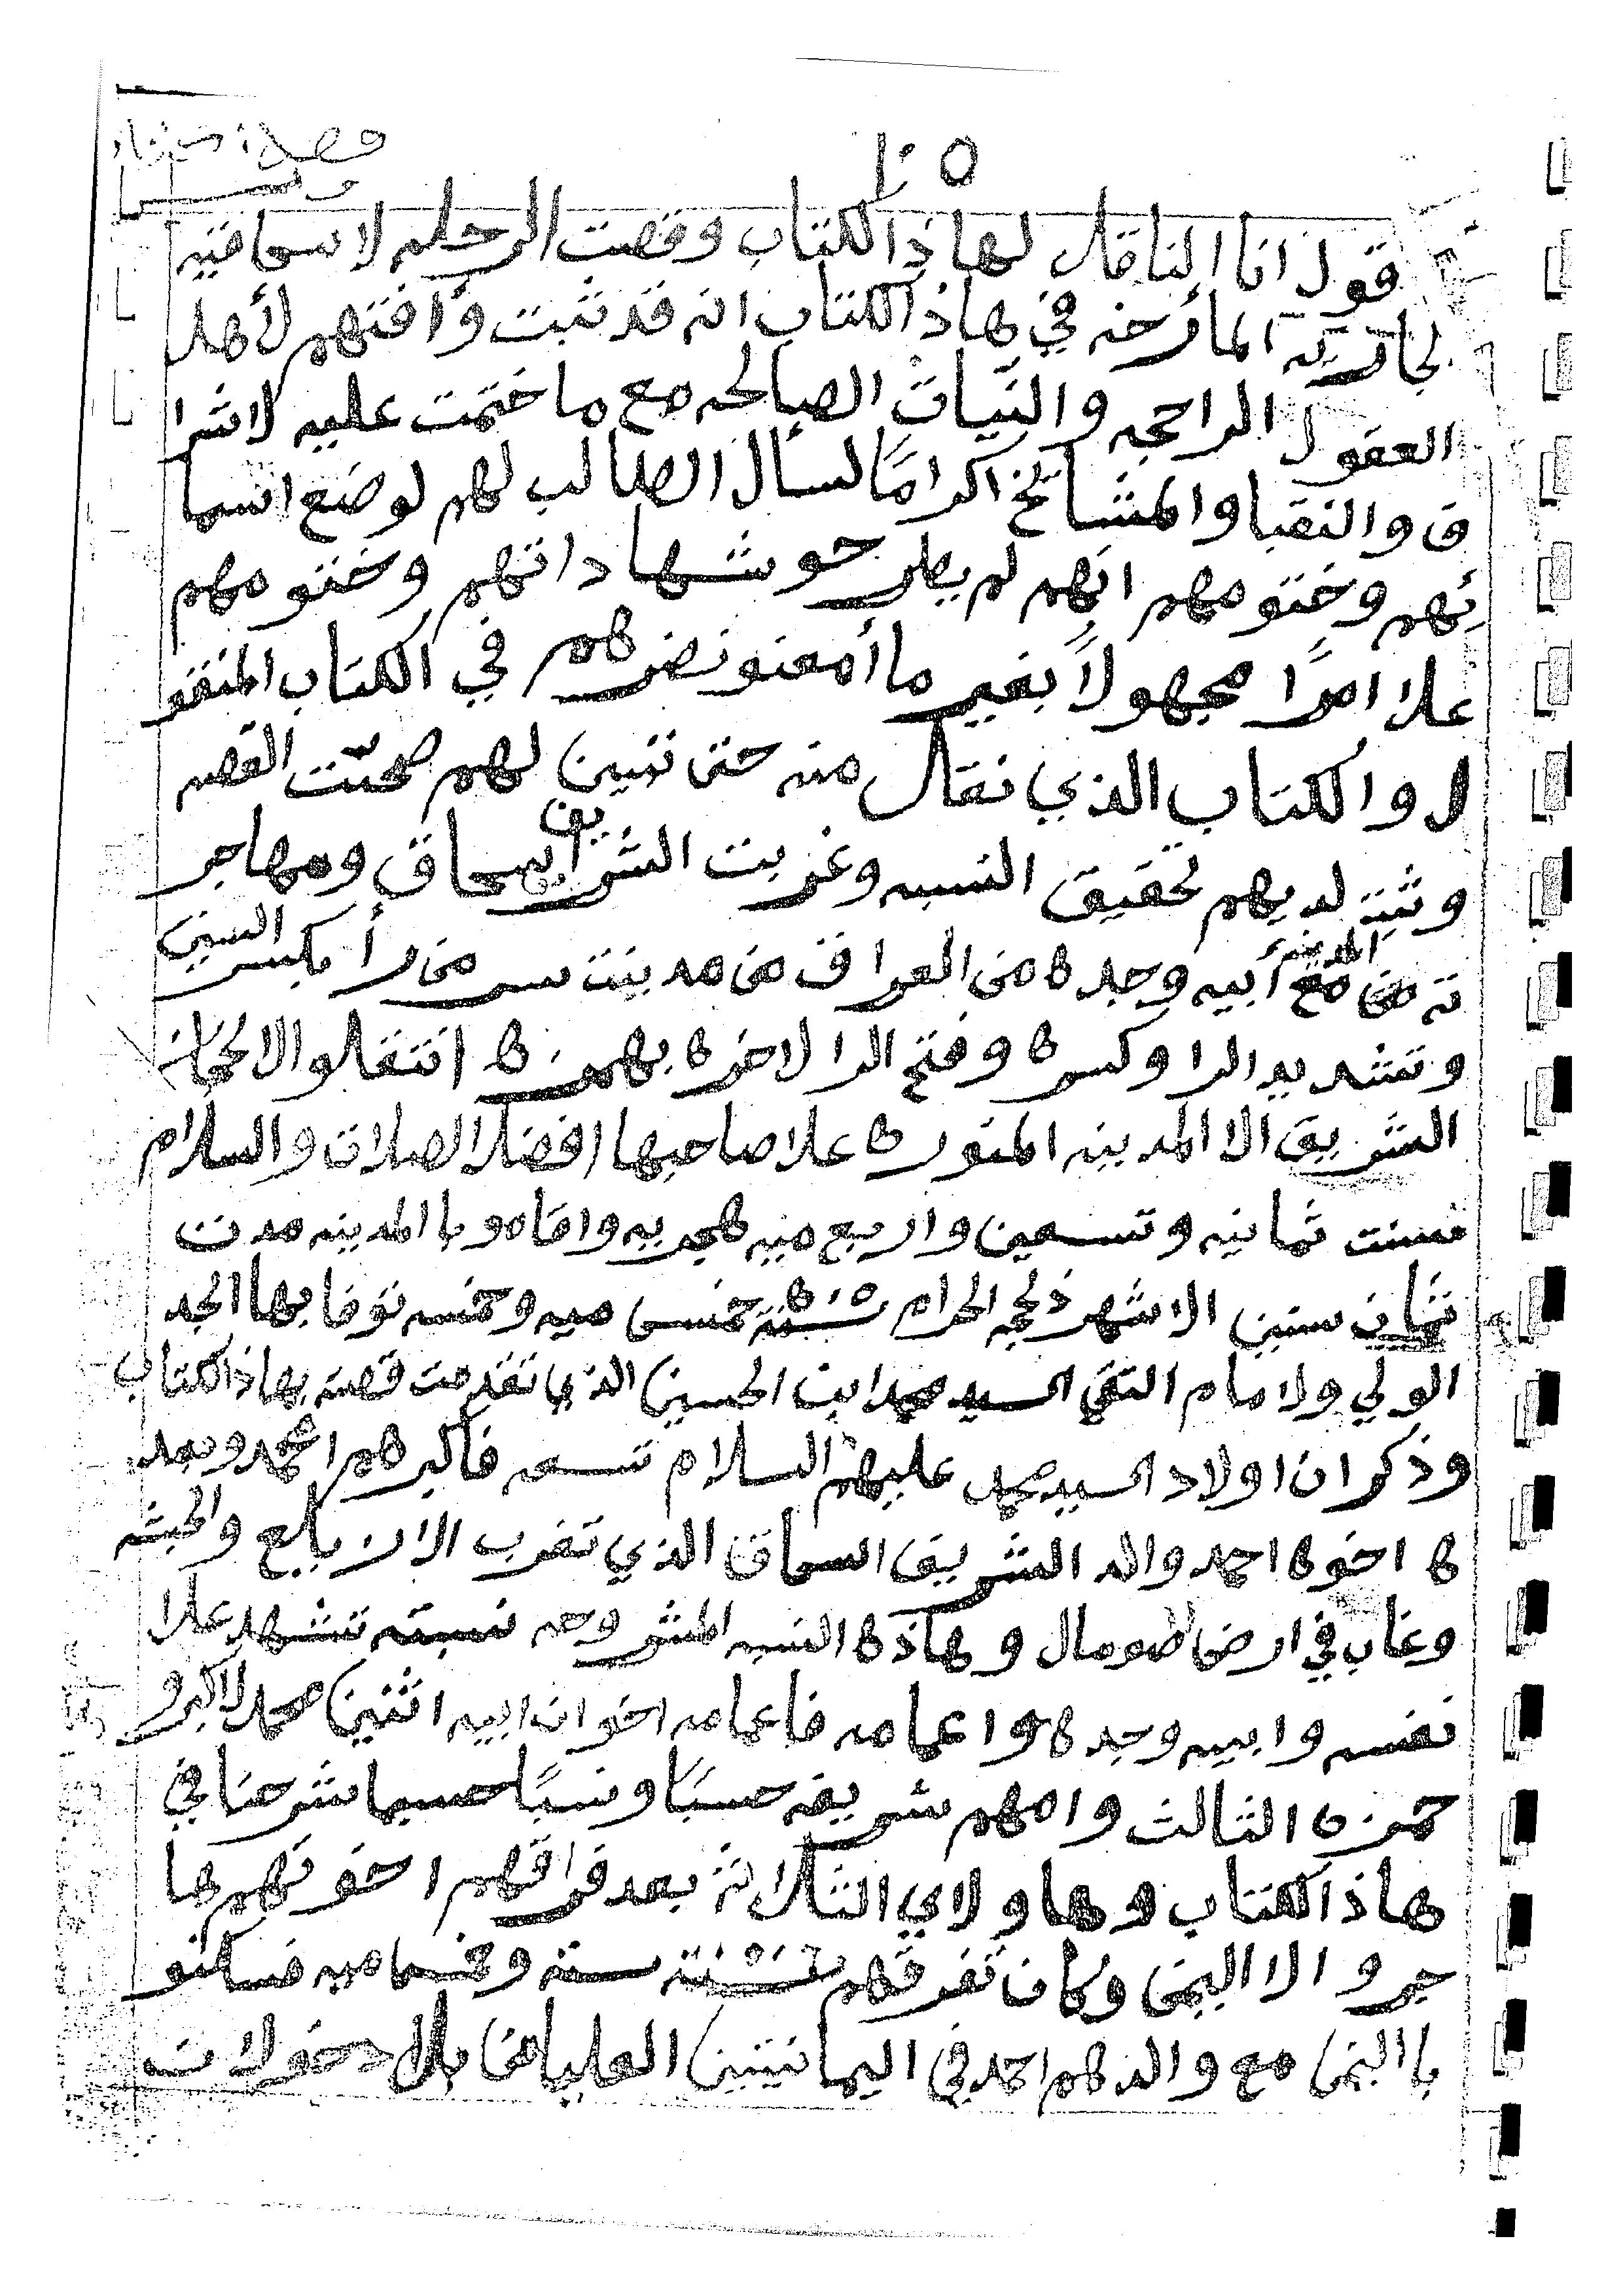 ١٠٥
قول انا الناقل لهاذ الكتاب وقصت الرحله لاسحاقيه
لجابريه المأرخه في هاذ الكتاب انه قد ثبت وأافتهم لأهل
العقول الراجحه والنيات الصالحه مع ما ختمت عليه لاشرا
ق والنقبا والمشائخ اكرامًا لسأل الطالب لهم لوضع اسما
ئهم وختومهم انهم لم يطرحو شهاداتهم وختومهم
علا امرًا مجهولاً بغير ما أمعنو نضرهم في الكتاب المنقو
ل والكتاب الذي نقال منه حتى تبين لهم صحتت القصه
وثبت لديهم تحقيق النسبه وغربت الشريف اسحاق ومهاجر
ته من المدينه مع أبيه وجده من العراق من مدينت سر من رأ بكسر السين
وتشديد الرا وكسره وفتح الرا لاخره بهمزه انتقلو الا لحجاز
الشريف الا المدينه المنوره علا صاحبها افضل الصلات والسلام
بسنت ثمانيه وتسعين واربع ميه هجريه واقاموا باالمدينه مدت
ثمان سنين الا شهر ذلحجه الحرام سنة ٥٠٥ خمس ميه وخمسه توفا بها الجد
الولي ولامام التقي السيد محمد ابن الحسين الذي تقدمت قصته بهاذ الكتاب
وذكر ان اولاد السيد محمد عليهم السلام تسعه فاكبرهم امحمد وبعد
ه اخوه احمد والد الشريف اسحاق الذي تغرب الا زيلع والحبشه
وغاب في ارض صومال وهاذه النسبه المشروحه نسبته تشهد علا
نفسه وابيه وجده واعمامه فاعمامه اخوان ابيه اثنين محمد لاكبر و
حمزه الثالث وامهم شريفه حسبًا ونسبًا حسبما شرحنا في
هاذ الكتاب وهاولاي الثلاثه بعد فراقهم اخوتهم ها
جرو الا اليمن وكان تفرقهم بسنة ٥٠٦ سته وخمسمايه فسكنو
باا ليمن مع والدهم احمد في اليمانيتين العليا من بلاد خولان ت